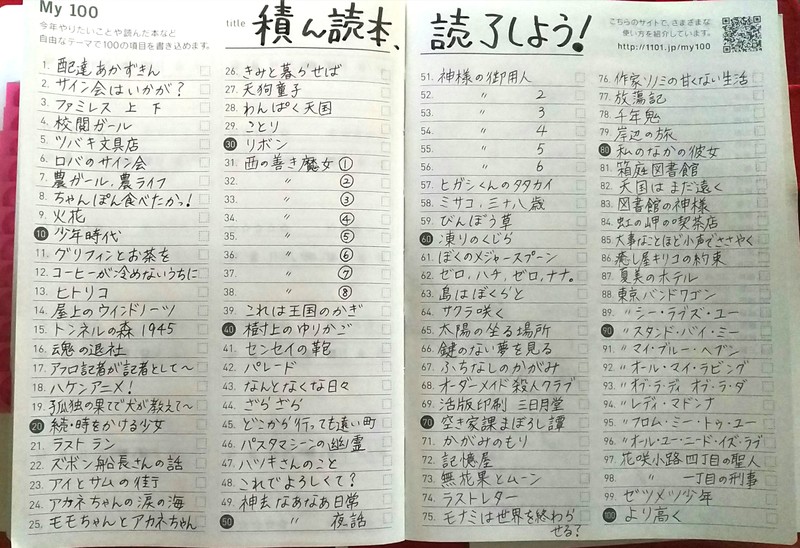 My 100
今年やりたいことや読んだ本など
自由なテーマで100の項目を書き込めます。
title 積ん読本、読了しよう!
こちらのサイトで、さまざまな
使い方を紹介しています。
http://1101.jp/my100
1. 配達あかずきん
2. サイン会はいかが?
3. ファミレス 上 下
4. 校閲ガール
5. ツバキ文具店
6. ロバのサイン会
7. 農ガール、農ライフ
8. ちゃんぽん食べたかっ!
9. 火花
10 少年時代
11. グリフィンとお茶を
12. コーヒーが冷めないうちに
13. ヒトリコ
14. 屋上のウインドノーツ
15. トンネルの森 1945
16. 魂の退社
17. アフロ記者が記者として〜
18. ハケンアニメ!
19. 孤独の果てで犬が教えて〜
20 続・時をかける少女
21. ラスト ラン
22. ズボン船長さんの話
23. アイとサムの街
24. アカネちゃんの涙の海
25. モモちゃんとアカネちゃん
26. きみと暮らせば
27. 天狗童子
28. わんぱく天国
29. ことり
30 リボン
31. 西の善き魔女 ①
32. 〃 ②
33. 〃 ③
34. 〃 ④
35. 〃 ⑤
36. 〃 ⑥
37. 〃 ⑦
38. 〃 ⑧
39. これは王国のかぎ
40 樹上のゆりかご
41. センセイの鞄
42. パレード
43. なんとなくな日々
44. ざらざら
45. どこから行っても遠い町
46. パスタマシーンの幽霊
47. ハヅキさんのこと
48. これでよろしくて?
49. 神去なあなあ日常
50 〃 夜話
51. 神様の御用人
52. 〃 2
53. 〃 3
54. 〃 4
55. 〃 5
56. 〃 6
57. ヒガシくんのタタカイ
58. ミサコ、三十八歳
59. びんぼう草
60 凍りのくじら
61. ぼくのメジャースプーン
62. ゼロ、ハチ、ゼロ、ナナ。
63. 島はぼくらと
64. サクラ咲く
65. 太陽の坐る場所
66. 鍵のない夢を見る
67. ふちなしのかがみ
68. オーダーメイド殺人クラブ
69. 活版印刷 三日月堂
70 空き家課まぼろし譚
71. かがみのもり
72. 記憶屋
73. 無花果とムーン
74. ラストレター
75. モナミは世界を終わらせる?
76. 作家ソノミの甘くない生活
77. 放蕩記
78. 千年鬼
79. 岸辺の旅
80 私のなかの彼女
81. 箱庭図書館
82. 天国はまだ遠く
83. 図書館の神様
84. 虹の岬の喫茶店
85. 大事なことほど小声でささやく
86. 癒し屋キリコの約束
87. 夏美のホテル
88. 東京バンドワゴン
89. 〃シー・ラブズ・ユー
90 〃スタンド・バイ・ミー
91. 〃マイ・ブルー・ヘブン
92. 〃オール・マイ・ラビング
93. 〃オブ・ラ・ディ オブ・ラ・ダ
94. 〃レディ・マドンナ
95. 〃フロム・ミー・トゥ・ユー
96. 〃オール・ユー・ニード・イズ・ラブ
97. 花咲小路四丁目の聖人
98. 〃 一丁目の刑事
99. ゼツメツ少年
100 より高く